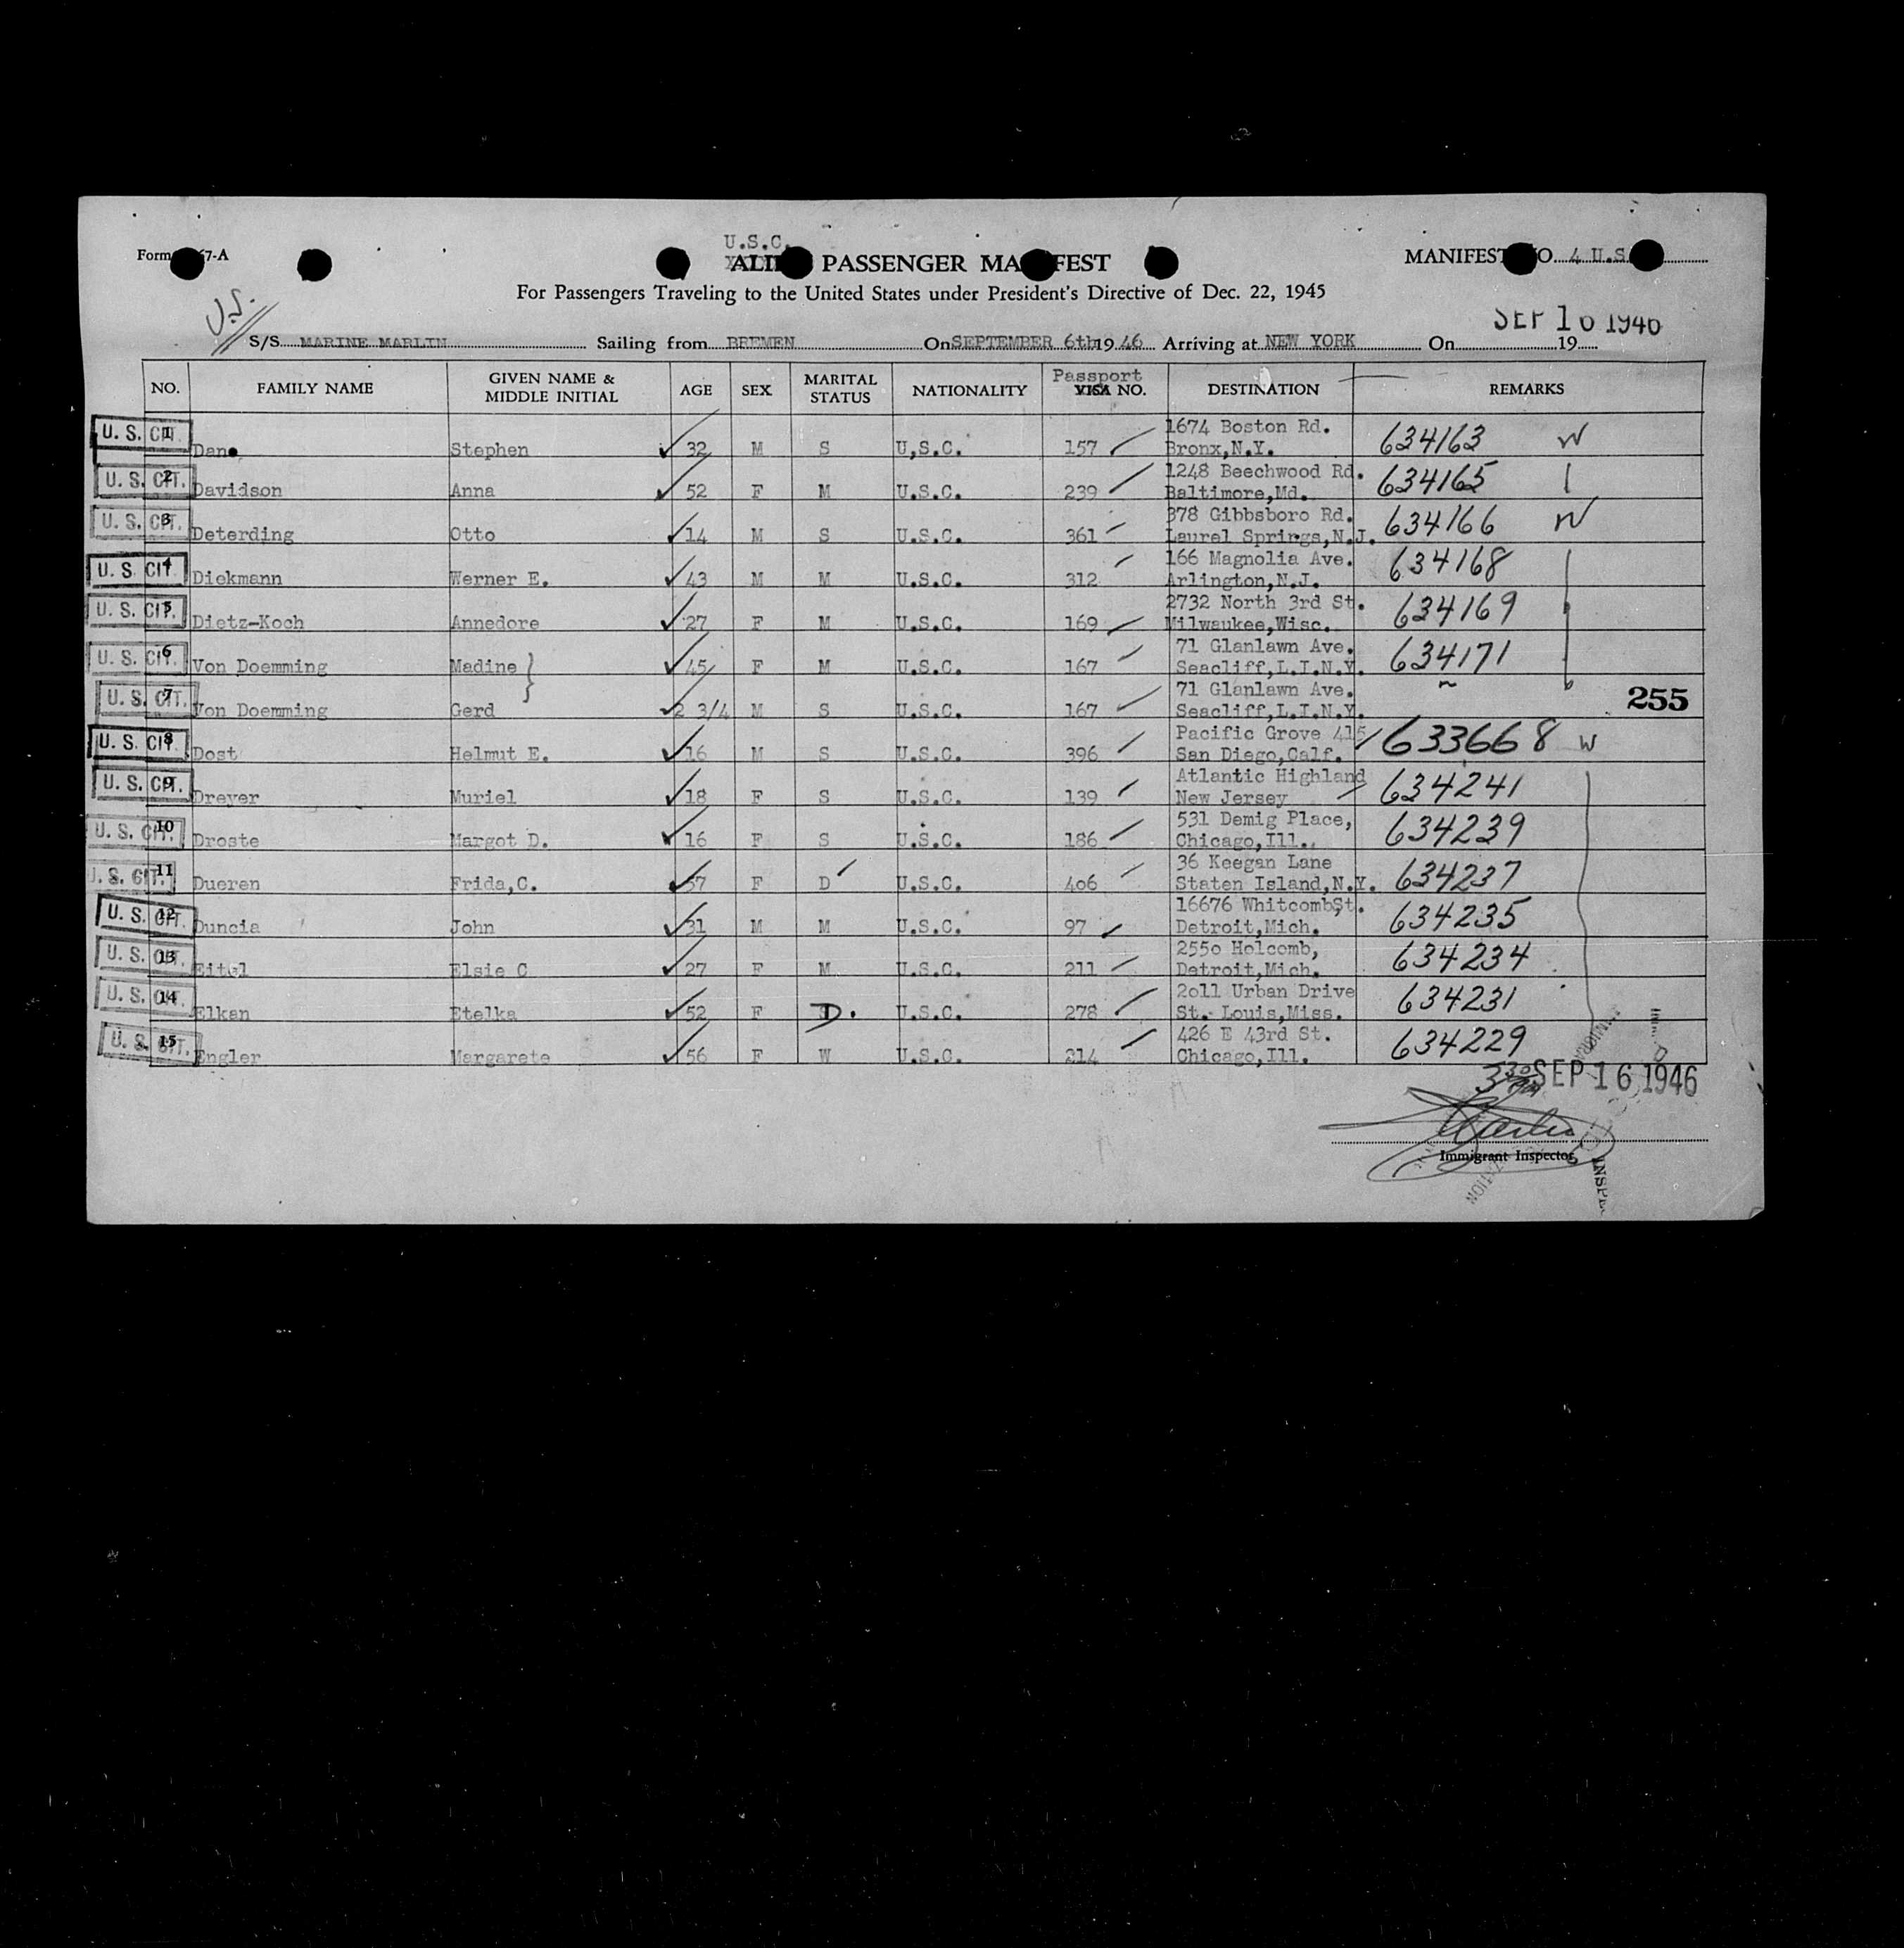 U.S.C.
Form 67-A
PASSENGER MANIFEST
MANIFEST NO. 4 U.S.
For Passengers Traveling to the United States under President's Directive of Dec. 22, 1945
U.S.
SEP 16 1946
S/S MARINE MARLIN Sailing from BREMEN On SEPTEMBER 6th 19 46 Arriving at NEW YORK On 19
NO. FAMILY NAME GIVEN NAME & MIDDLE INITIAL AGE SEX MARITAL STATUS NATIONALITY Passport VISA NO. DESTINATION REMARKS
1674 Boston Rd.
U. S. CIT. 1 Dane Stephen 32 M S U,S.C. 157 Bronx,N.Y. 634163 W
1248 Beechwood Rd.
U. S. CIT. 2 Davidson Anna 52 F M U.S.C. 239 Baltimore,Md. 634165
378 Gibbsboro Rd.
U. S. CIT. 3 Deterding Otto 14 M S U.S.C. 361 Laurel Springs,N.J. 634166 W
166 Magnolia Ave.
U. S. CIT. 4 Diekmann Werner E. 43 M M U.S.C. 312 Arlington,N.J. 634168
2732 North 3rd St.
U. S. CIT. 5 Dietz-Koch Annedore 27 F M U.S.C. 169 Milwaukee,Wisc. 634169
71 Glanlawn Ave.
U. S. CIT. 6 Von Doemming Madine 45 F M U.S.C. 167 Seacliff,L.I.N.Y. 634171
71 Glanlawn Ave.
U. S. CIT. 7 Von Doemming Gerd 2 3/4 M S U.S.C. 167 Seacliff,L.I.N.Y. 255
Pacific Grove 415
U. S. CIT. 8 Dost Helmut E. 16 M S U.S.C. 396 San Diego,Calf. 633668 W
Atlantic Highland
U. S. CIT. 9 Dreyer Muriel 18 F S U.S.C. 139 New Jersey 634241
531 Demig Place,
U. S. CIT. 10 Droste Margot D. 16 F S U.S.C. 186 Chicago,Ill. 634239
36 Keegan Lane
U. S. CIT. 11 Dueren Frida,C. 57 F D U.S.C. 406 Staten Island,N.Y. 634237
16676 WhitcombSt.
U. S. CIT. 12 Duncia John 31 M M U.S.C. 97 Detroit,Mich. 634235
255o Holcomb,
U. S. CIT. 13 Eitel Elsie C 27 F M U.S.C. 211 Detroit,Mich. 634234
2o11 Urban Drive
U. S. CIT. 14 Elkan Etelka 52 F D. U.S.C. 278 St. Louis,Miss. 634231
426 E 43rd St.
U. S. CIT. 15 Engler Margarete 56 F W U.S.C. 214 Chicago,Ill. 634229
SEP 16 1946
Immigrant Inspector